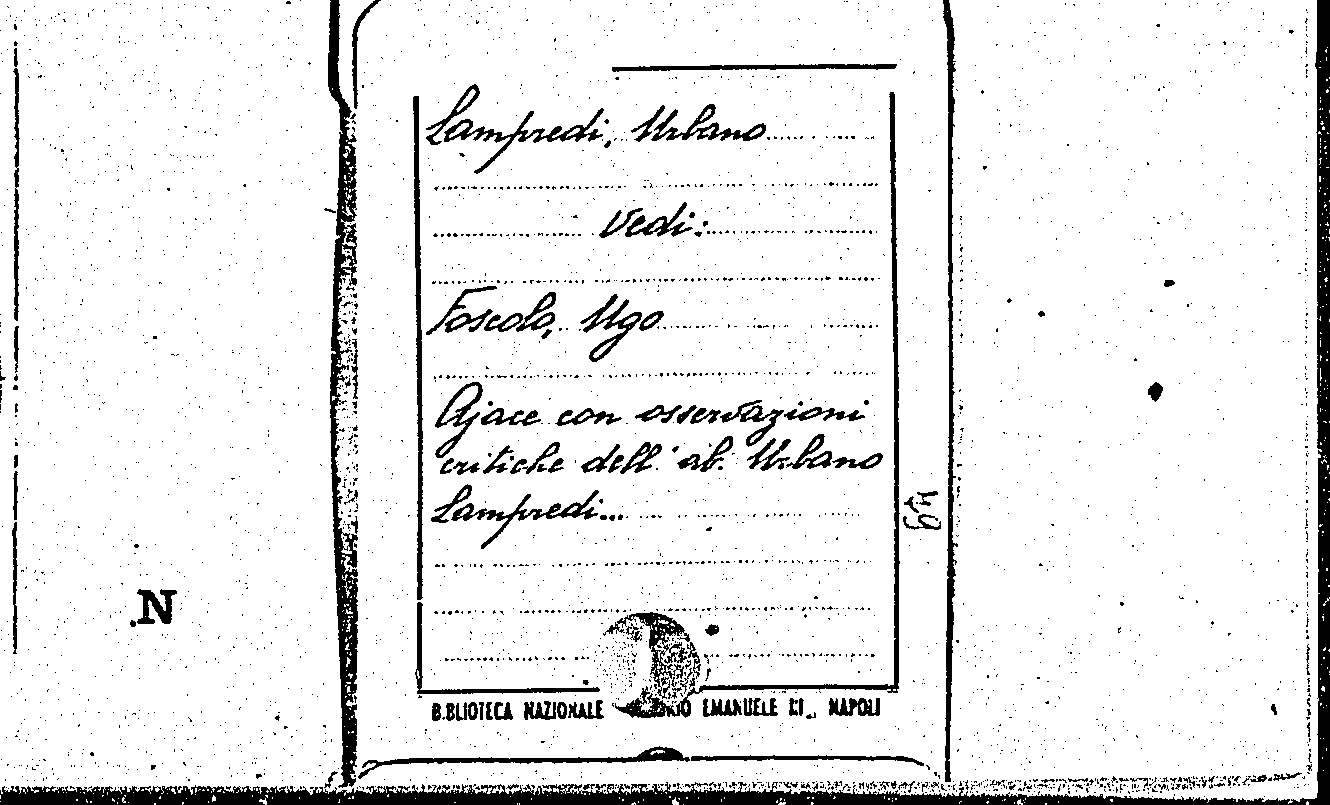 Lampredi, Urbano
Vedi:
Foscolo, Ugo
Ajace con osservazioni
critiche dell' ab. Urbano
Lampredi...
N
B.BLIOTECA NAZIONALE EMANUELE NAPOLI